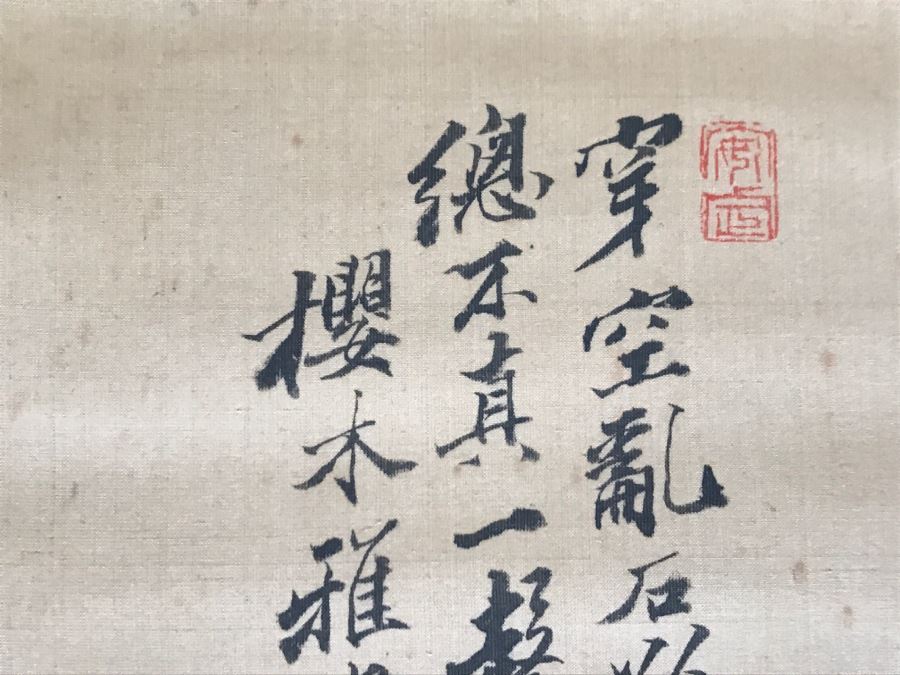 穿空亂石
總不真一
櫻木雅